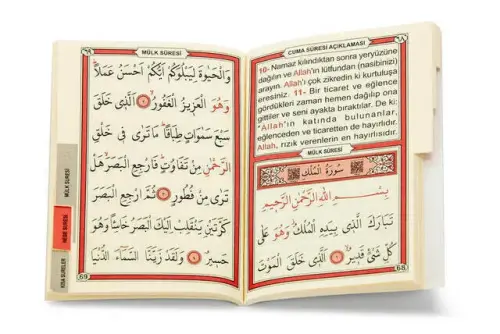 CUMA SÛRESİ AÇIKLAMASI
10- Namaz kılındıktan sonra yeryüzüne
dağılın ve Allah'ın lütfundan (nasibinizi)
arayın. Allah'ı çok zikredin ki kurtuluşa
eresiniz. 11- Bir ticaret ve eğlence
gördükleri zaman hemen dağılıp ona
gittiler ve seni ayakta bıraktılar. De ki:
"Allah'ın katında bulunanlar,
eğlenceden ve ticaretten de hayırlıdır.
Allah, rızık verenlerin en hayırlısıdır.
MÜLK SÛRESİ
سُورَةُ الْمُلْكِ
بِسْمِ اللّٰهِ الرَّحْمٰنِ الرَّحِيمِ
تَبَارَكَ الَّذِي بِيَدِهِ الْمُلْكُ وَهُوَ عَلٰى
كُلِّ شَيْءٍ قَدِيرٌ ۝ الَّذِي خَلَقَ الْمَوْتَ
68
MÜLK SÛRESİ
وَالْحَيٰوةَ لِيَبْلُوَكُمْ اَيُّكُمْ اَحْسَنُ عَمَلًا
وَهُوَ الْعَزِيزُ الْغَفُورُ ۝ الَّذِي خَلَقَ
سَبْعَ سَمٰوَاتٍ طِبَاقًا مَا تَرٰى فِي خَلْقِ
الرَّحْمٰنِ مِنْ تَفَاوُتٍ فَارْجِعِ الْبَصَرَ هَلْ
تَرٰى مِنْ فُطُورٍ ۝ ثُمَّ ارْجِعِ الْبَصَرَ
كَرَّتَيْنِ يَنْقَلِبْ اِلَيْكَ الْبَصَرُ خَاسِئًا وَهُوَ
حَسِيرٌ ۝ وَلَقَدْ زَيَّنَّا السَّمَاءَ الدُّنْيَا
69
MÜLK SURESİ
NEBE SURESİ
KISA SURELER